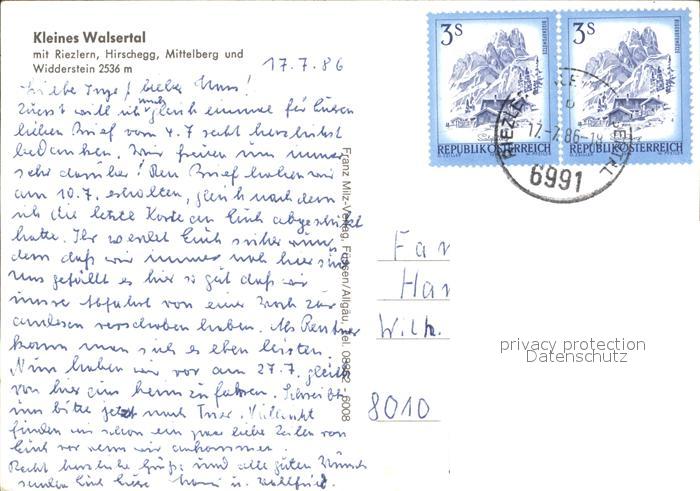 Kleines Walsertal
mit Riezlern, Hirschegg, Mittelberg und
Widderstein 2536 m
17.7.86
Liebe Inge, lieber Hans!
Zuerst will ich mich gleich einmal für Euren
lieben Brief vom 4.7 recht herzlichst
bedanken. Wir freuen uns immer
sehr darüber! Den Brief haben wir
am 10.7. erhalten, gleich nach dem
ich die letzte Karte an Euch abgeschickt
hatte. Ihr werdet Euch sicher wun-
dern daß wir immer noch hier sind
Uns gefällt es hier so gut daß wir
unsere Abfahrt von einer Woch zur
anderen verschoben haben. Als Rentner
kann man sich es eben leisten.
Nun haben wir vor am 27.7. gleich
von hier aus heim zu fahren. Schreibt
uns bitte jetzt nach Vielleicht
finden wir schon ein paar liebe Zeilen von
Euch vor wenn wir ankommen.
Recht herzliche Grüße und alle guten Wünsche
senden Euch Eure u.
Franz Milz-Verlag, Füssen/Allgäu, Tel. 08362 - 6008
3S
REPUBLIK ÖSTERREICH
3S
REPUBLIK ÖSTERREICH
17.-7.86-18
6991
Fam
Han
Wilh.
8010
privacy protection
Datenschutz